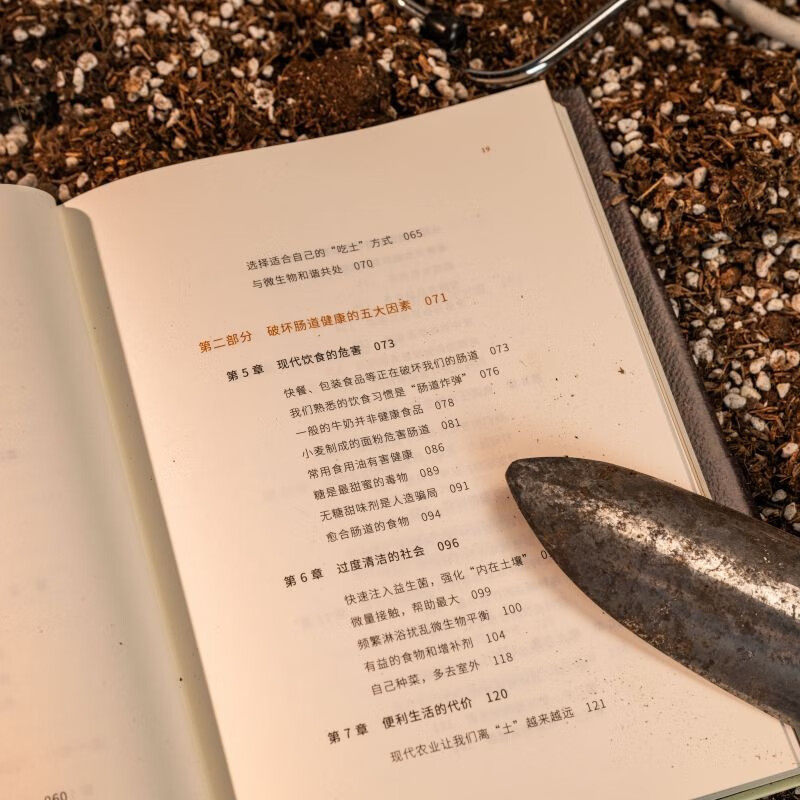 19
选择适合自己的“吃土”方式 065
与微生物和谐共处 070
第二部分 破坏肠道健康的五大因素 071
第 5 章 现代饮食的危害 073
快餐、包装食品等正在破坏我们的肠道 073
我们熟悉的饮食习惯是“肠道炸弹” 076
一般的牛奶并非健康食品 078
小麦制成的面粉危害肠道 081
常用食用油有害健康 086
糖是最甜蜜的毒物 089
无糖甜味剂是人造骗局 091
愈合肠道的食物 094
第 6 章 过度清洁的社会 096
快速注入益生菌，强化“内在土壤”
微量接触，帮助最大 099
频繁淋浴扰乱微生物平衡 100
有益的食物和增补剂 104
自己种菜，多去室外 118
第 7 章 便利生活的代价 120
现代农业让我们离“土”越来越远 121
060